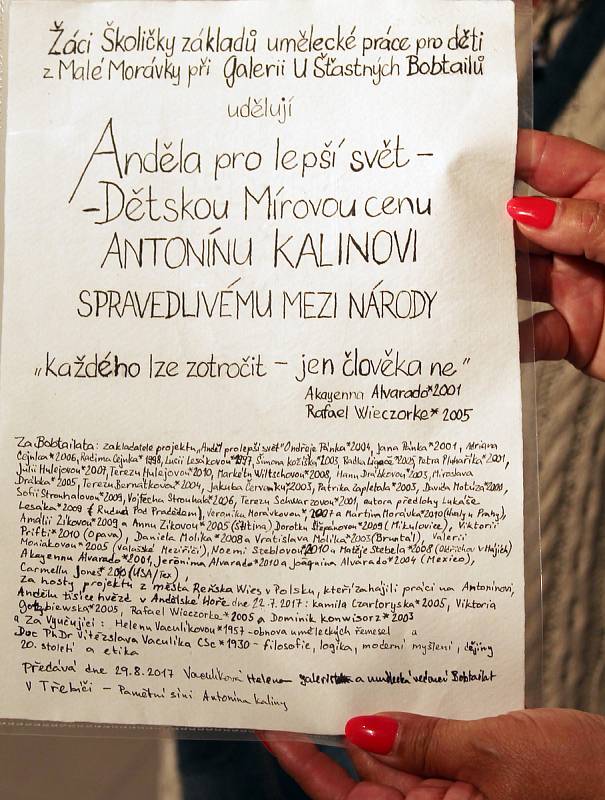 Žáci Školičky základů umělecké práce pro děti
z Malé Morávky při Galerii U Šťastných Bobtailů
udělují
Anděla pro lepší svět –
-Dětskou Mírovou cenu
ANTONÍNU KALINOVI
SPRAVEDLIVÉMU MEZI NÁRODY
„každého lze zotročit – jen člověka ne"
Akayenna Alvarado*2001
Rafael Wieczorke* 2005
Za Bobtailata: zakladatele projektu „Anděl pro lepší svět" Ondřeje Pánka*2004, Jana Pánka*2001, Adriana
Cejnka*2006, Radima Cejnka* 1998, Lucii Lesákovou*1997, Šimona Kozíška*2003, Radka *2005, Petra *2001,
Julii Hulejovou*2007, Terezu Hulejovou*2010, Markétu Wiltschovou*2008, Hanu Drábkovou*2003, Miroslava
Drábka*2005, Terezu Bernátkovou*2004, Jakuba Červinku*2003, Patrika Zapletala*2003, Davida Motúza*2000,
Sofii Strouhalovou*2009, Vojtěcha Strouhala*2006, Terezu Schwarzovou*2001, autora předlohy Lukáše
Lesáka*2009 (Rudná Pod Pradědem), Veroniku Morávkovou*2007 a Martina Morávka*2010 (Haly u Prahy),
Amálii Zikovou*2009 a Annu Zikovou*2005 (Štítina) Dorotku Štěpánovou*2009 (Mikulovice), Viktorii
Prifti*2010 (Opava), Daniela Molíka*2008 a Vratislava Molíka*2003 (Bruntál) Valerii
Moniakovou*2005 (Valašské Meziříčí), Noemi Steblovou*2010 a Matěje Stebela*2008 (Oldřichov v Hájích)
Akayennu Alvarado*2001, Jerónima Alvarado*2010 a Joaquina Alvarado*2004 (Mexico),
Carmellu Jones*2010 (USA/Tex),
za hosty projektu z města Reńska Wies v Polsku, kteří zahájili práci na Antonínovi,
Andělu tisíce hvězd v Andělské Hoře dne 22.7.2017: Kamila Czarforyska*2005, Viktoria
Gołębiewska*2005, Rafael Wieczorke*2005 a Dominik Konwisorz*2003
a Za Vyučující: Helenu Vaculíkovou*1957 - obnova uměleckých řemesel a
Doc PhDr Vítězslava Vaculíka CSc*1930 - filosofie, logika, moderní myšlení, dějiny
20. století a etika
Předává dne 29.8.2017 Vaculíková Helena galeristka a umělecká vedoucí Bobtailat
v Třebíči – Pamětní síni Antonína Kaliny